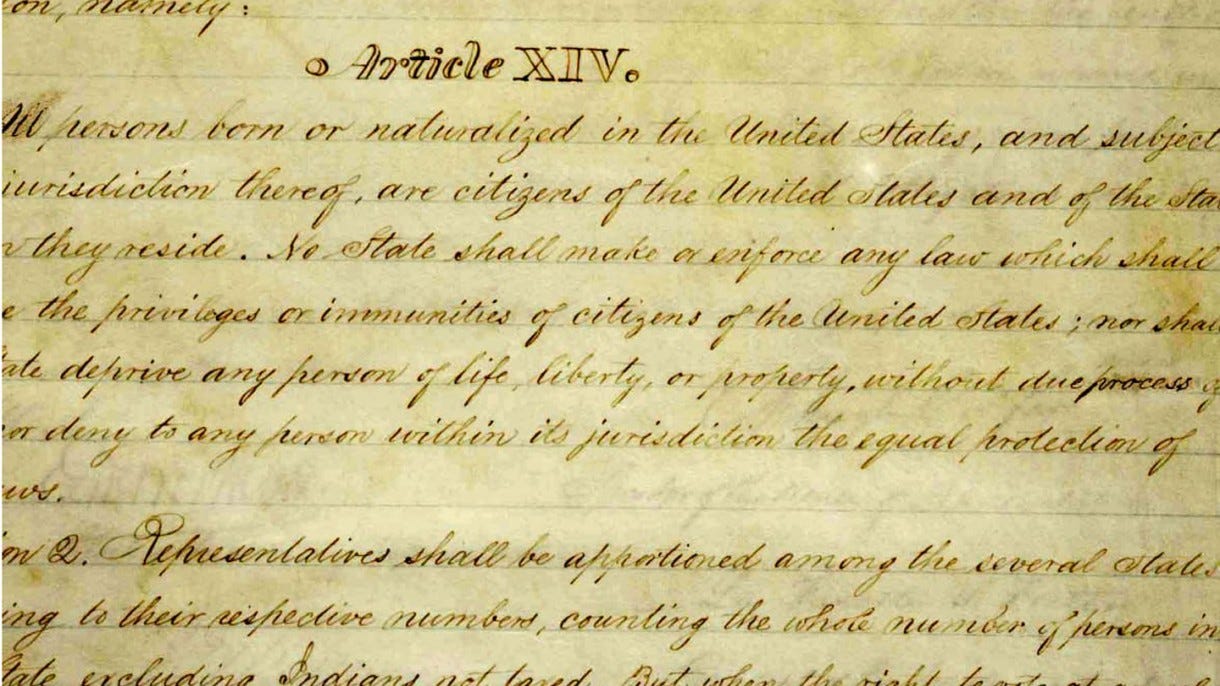 on, namely:
Article XIV.
All persons born or naturalized in the United States, and subject
jurisdiction thereof, are citizens of the United States and of the Sta
n they reside. No State shall make or enforce any law which shall
e the privileges or immunities of citizens of the United States; nor shall
tate deprive any person of life, liberty, or property, without due process of
or deny to any person within its jurisdiction the equal protection of
aws.
on 2. Representatives shall be apportioned among the several States
ing to their respective numbers, counting the whole number of persons in
tate excluding Indians not taxed. But when the right to vote at